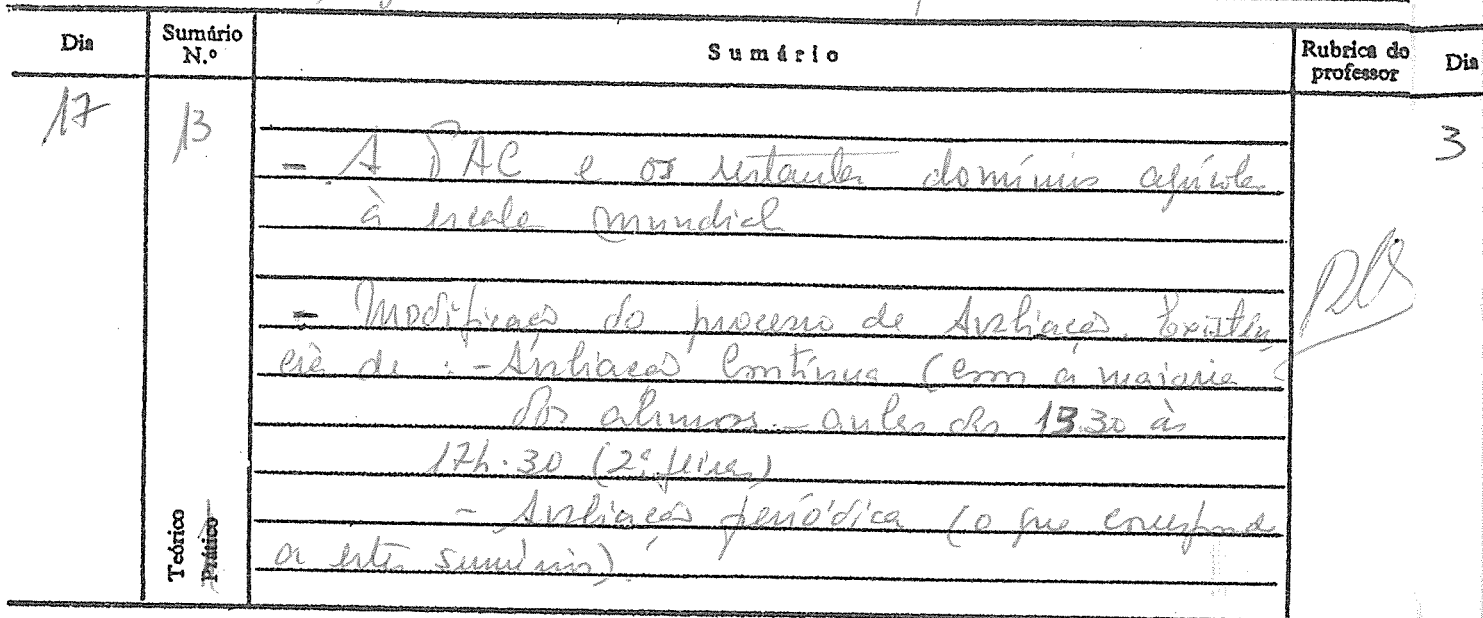 Dia Sumário N.º Sumário Rubrica do professor Dia
17 13 3
- A PAC e os restantes domínios agrícolas
à escala mundial
- Modificação do processo de Avaliação. Existên
cia de : - Avaliação Contínua (com a maioria
dos alunos - aulas das 13.30 às
17h.30 (2ªs feiras)
- Avaliação periódica (o que corresponde
a estes sumários).
Teórico
Prático